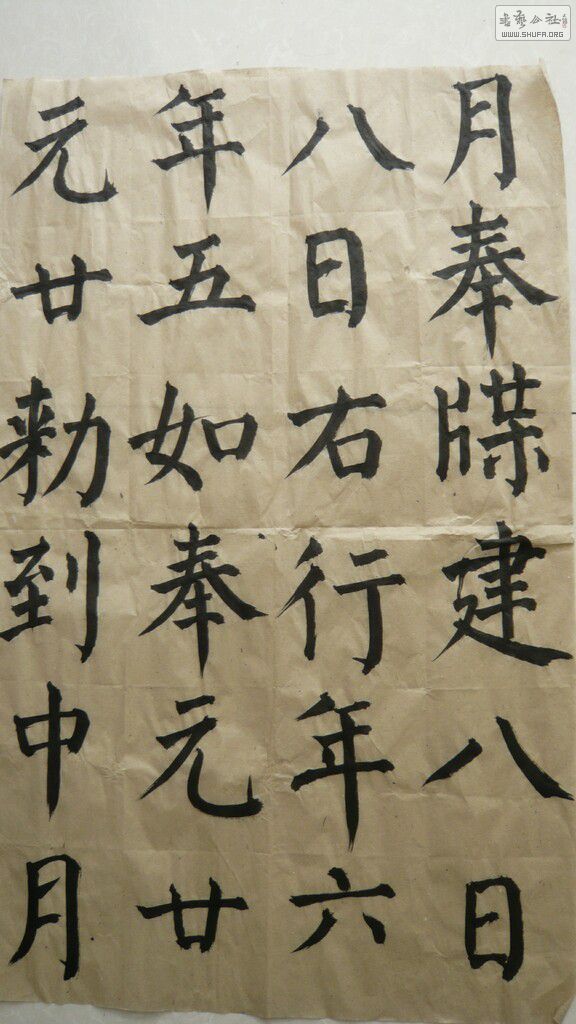 月奉牒建八日
八日右行年六
年五如奉元廿
元廿勅到中月
書藝公社
WWW.SHUFA.ORG